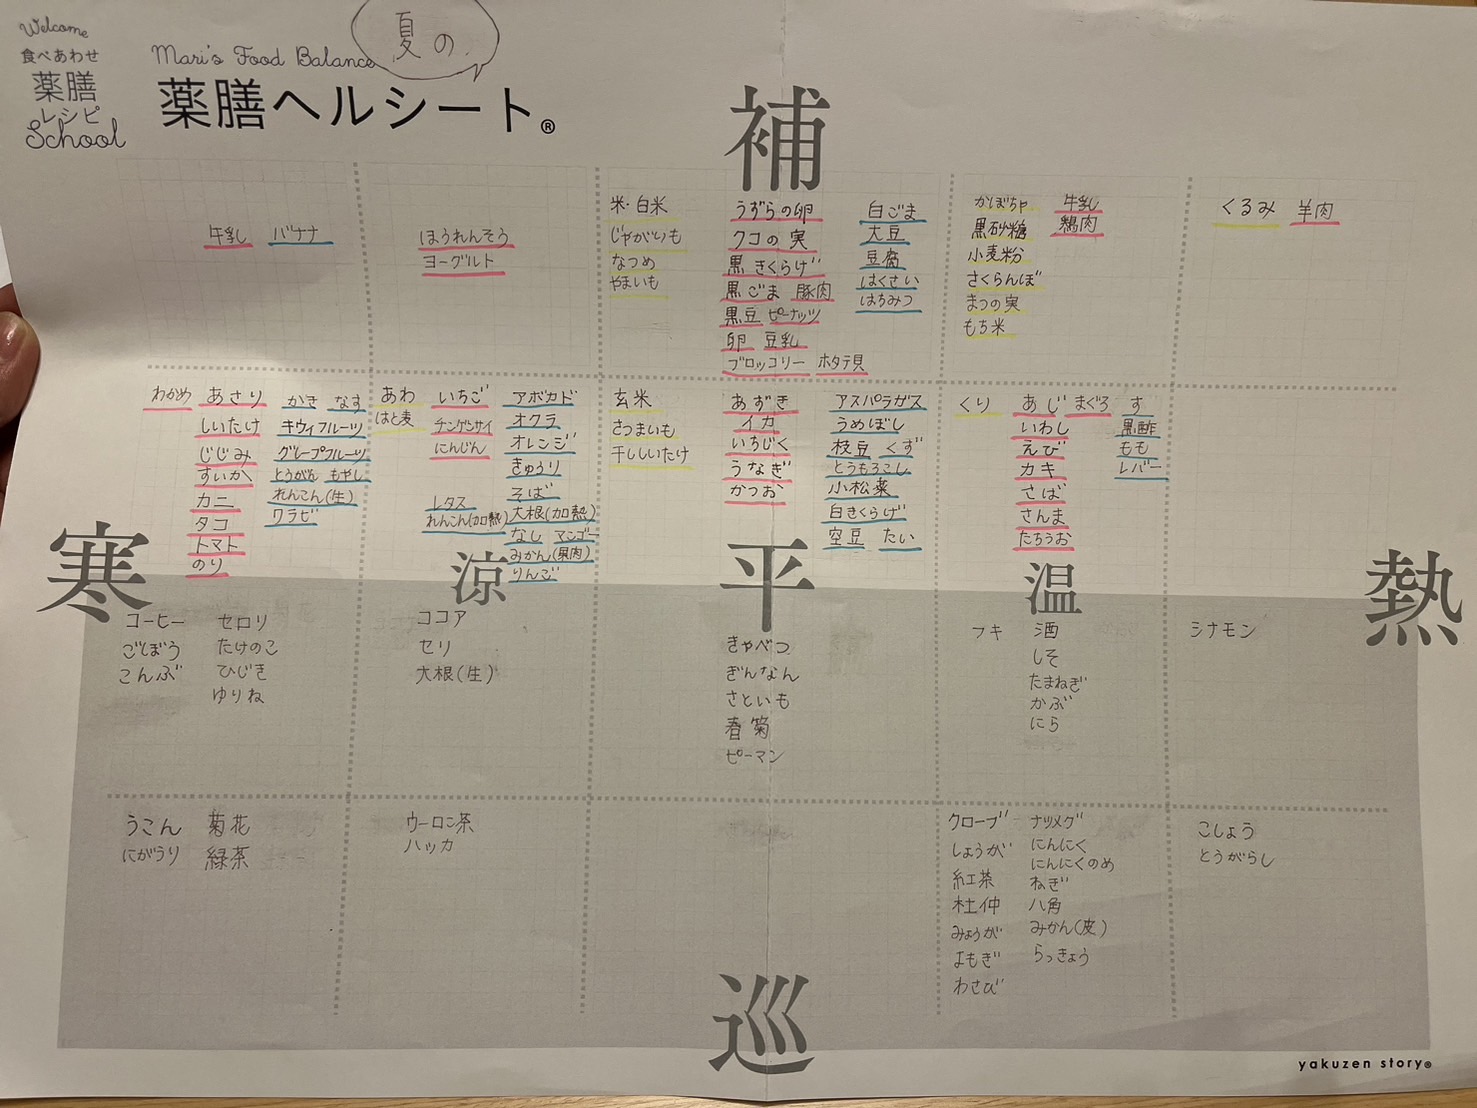 Welcome
食べあわせ
薬膳
レシピ
School
Mari's Food Balance
夏の
薬膳ヘルシート®
補
牛乳 バナナ
ほうれんそう
ヨーグルト
米・白米
じゃがいも
なつめ
やまいも
うずらの卵
クコの実
黒きくらげ
黒ごま 豚肉
黒豆 ピーナッツ
卵 豆乳
ブロッコリー ホタテ貝
白ごま
大豆
豆腐
はくさい
はちみつ
かぼちゃ
黒砂糖
小麦粉
さくらんぼ
まつの実
もち米
牛乳
鶏肉
くるみ 羊肉
わかめ
あさり
しいたけ
しじみ
すいか
カニ
タコ
トマト
のり
かき なす
キウィフルーツ
グレープフルーツ
とうがん もやし
れんこん(生)
ワラビ
あわ
はと麦
いちご
チンゲンサイ
にんじん
レタス
れんこん(加熱)
アボカド
オクラ
オレンジ
きゅうり
そば
大根(加熱)
なし マンゴー
みかん(果肉)
りんご
玄米
さつまいも
干ししいたけ
あずき
イカ
いちじく
うなぎ
かつお
アスパラガス
うめぼし
枝豆 くず
とうもろこし
小松菜
白きくらげ
空豆 たい
くり
あじ まぐろ
いわし
えび
カキ
さば
さんま
たちうお
す
黒酢
もも
レバー
寒
涼
平
温
熱
コーヒー
ごぼう
こんぶ
セロリ
たけのこ
ひじき
ゆりね
ココア
セリ
大根(生)
きゃべつ
ぎんなん
さといも
春菊
ピーマン
フキ
酒
しそ
たまねぎ
かぶ
にら
シナモン
うこん
にがうり
菊花
緑茶
ウーロン茶
ハッカ
クローブ
しょうが
紅茶
杜仲
みょうが
よもぎ
わさび
ナツメグ
にんにく
にんにくのめ
ねぎ
八角
みかん(皮)
らっきょう
こしょう
とうがらし
巡
yakuzen story®